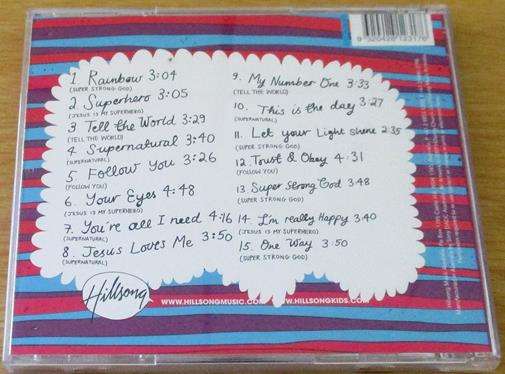 1 Rainbow 3:04
(SUPER STRONG GOD)
2 Superhero 3:05
(JESUS IS MY SUPERHERO)
3 Tell the World 3:29
(TELL THE WORLD)
4 Supernatural 3:40
(SUPERNATURAL)
5. Follow You 3:26
(FOLLOW YOU)
6. Your Eyes 4:48
(JESUS IS MY SUPERHERO)
7. You're all I need 4:16
(SUPERNATURAL)
8. Jesus Loves Me 3:50
(SUPERNATURAL)
9. My Number One 3:33
(TELL THE WORLD)
10. This is the day 3:27
(SUPERNATURAL)
11. Let your Light Shine 2:35
(SUPER STRONG GOD)
12. Trust & Obey 4:31
(FOLLOW YOU)
13. Super Strong God 3:48
(SUPER STRONG GOD)
14. I'm really Happy 3:40
(JESUS IS MY SUPERHERO)
15. One Way 3:50
(SUPER STRONG GOD)
Hillsong
WWW.HILLSONGMUSIC.COM WWW.HILLSONGKIDS.COM